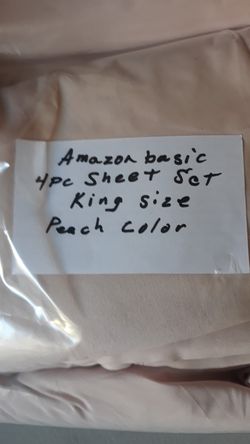 Amazon basic
4pc Sheet Set
King Size
Peach Color